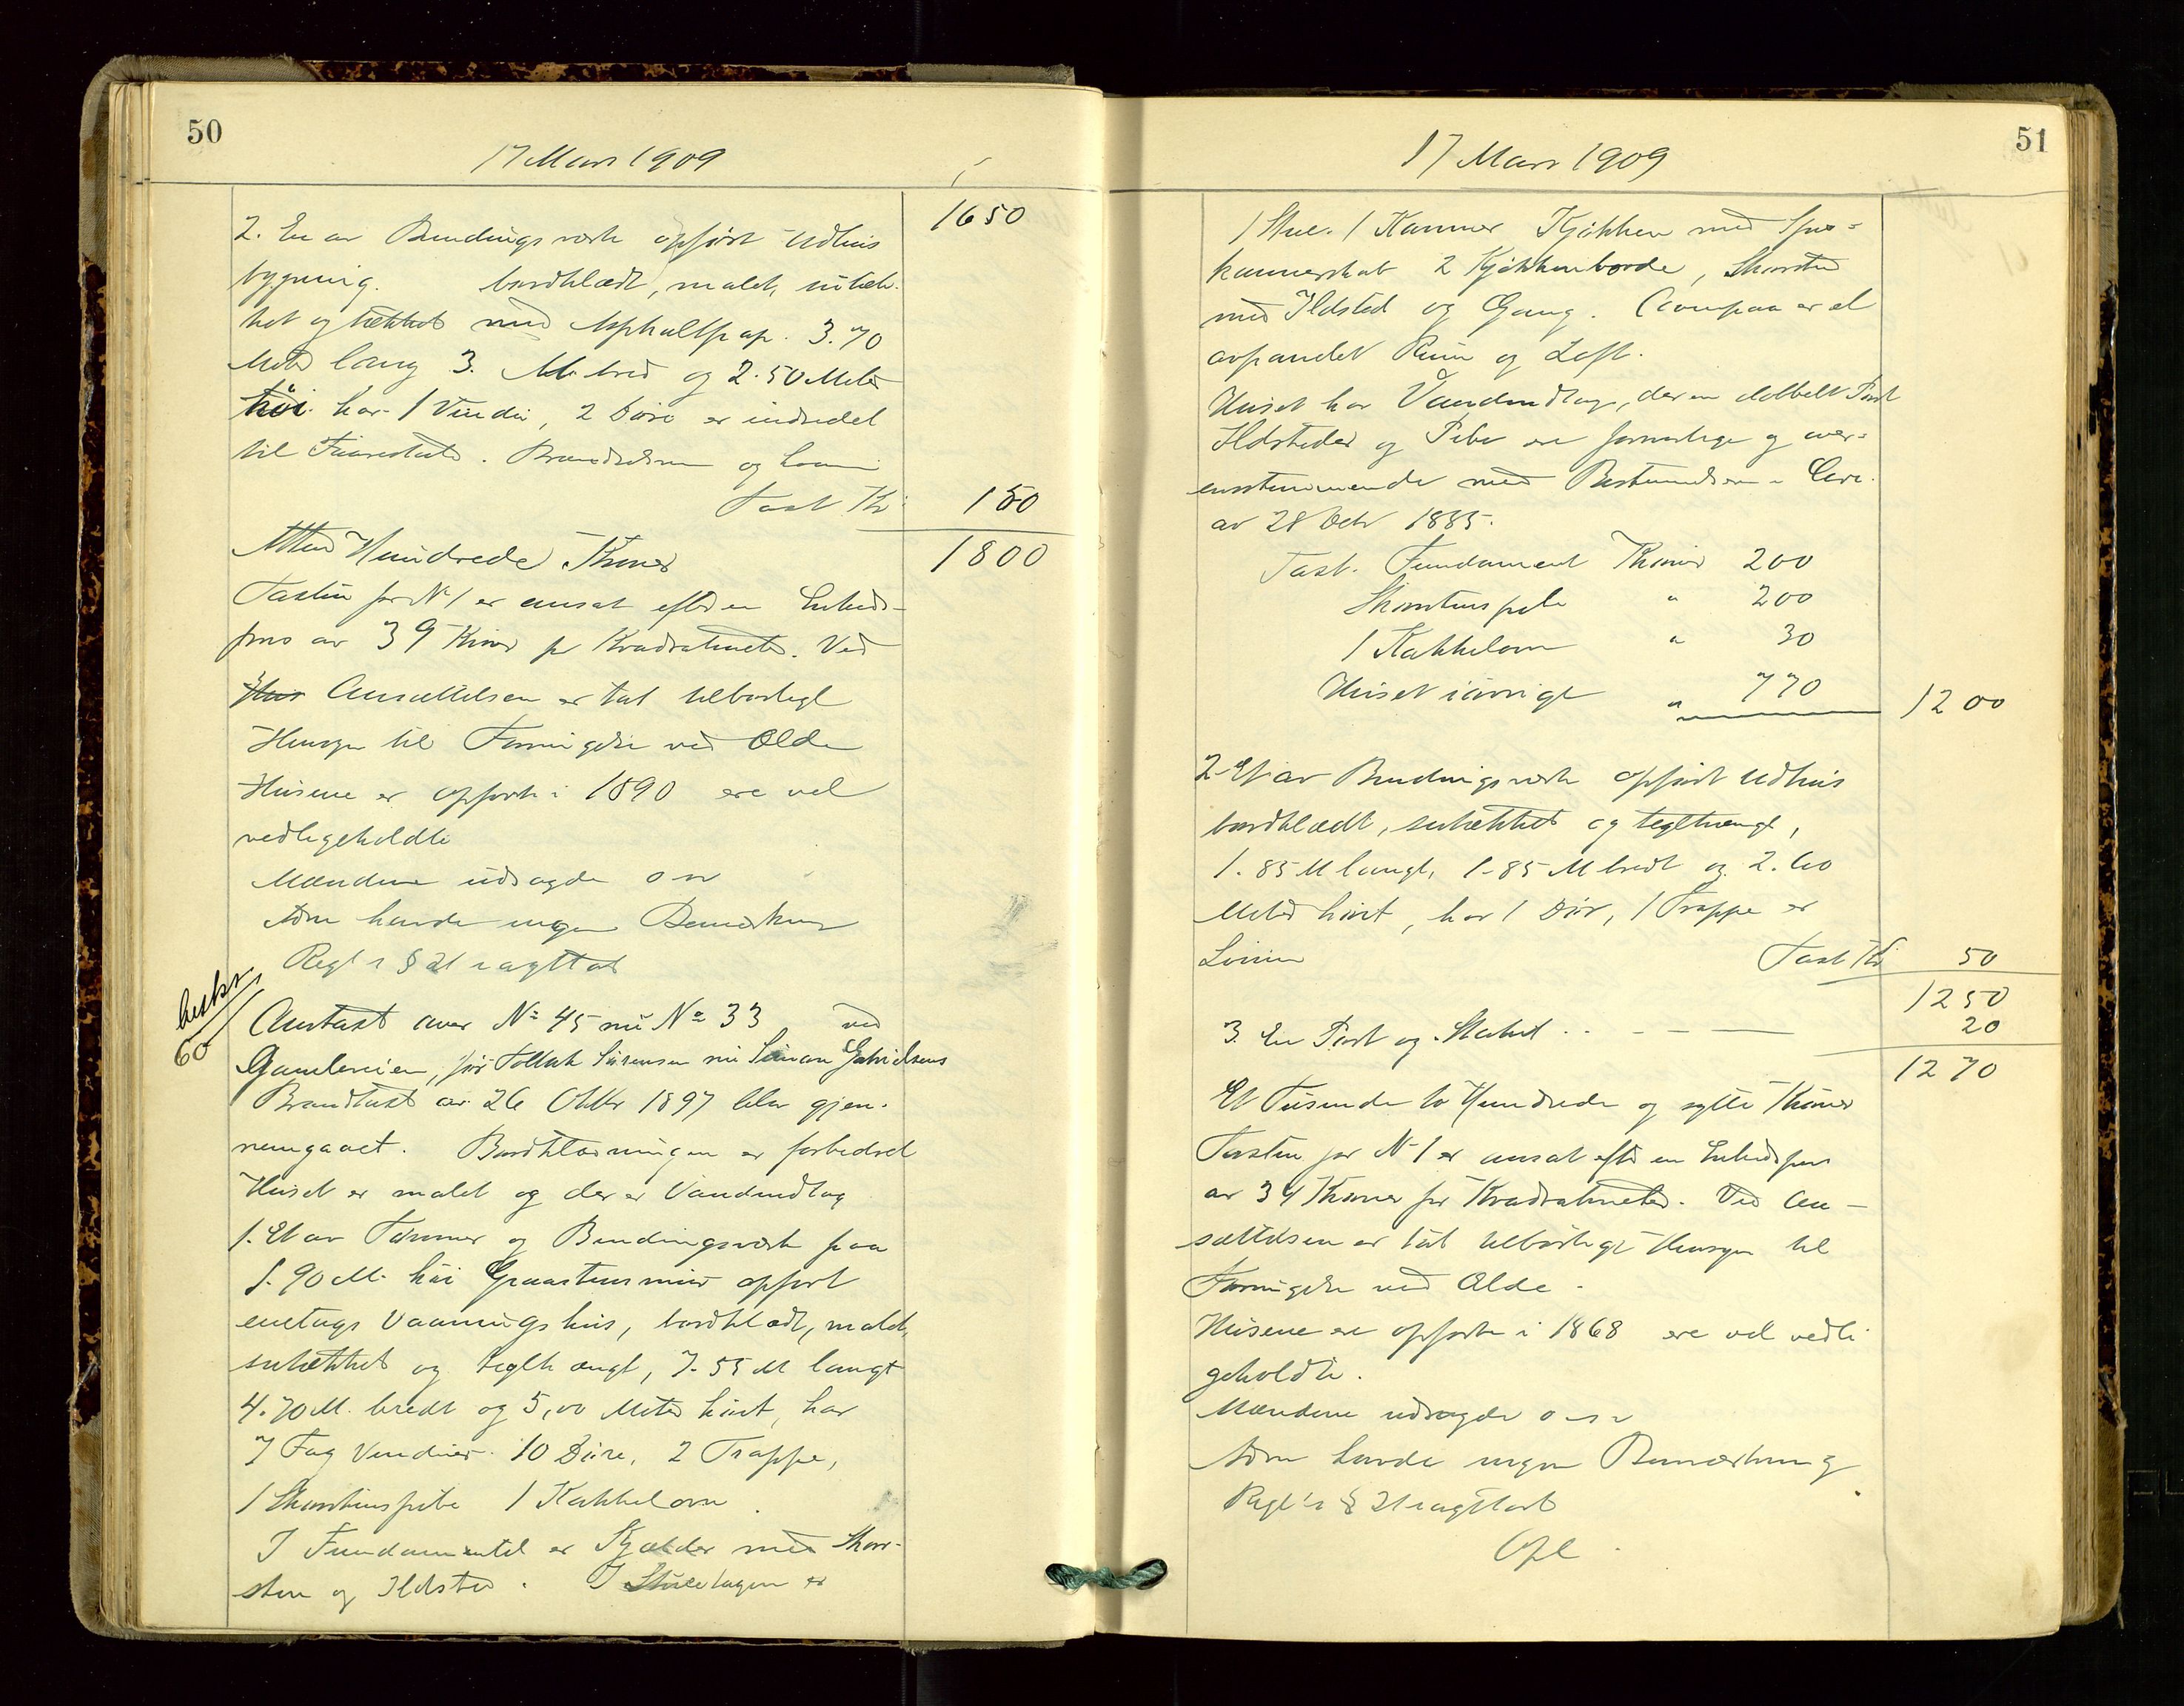 50
17 Mars 1909
1650
2. En av Bindingsverk opført Udhus
bygning. bordklædt, malet, sutæk-
ket og tækket med Asphaltpap. 3.70
Meter lang 3. M. bred og 2.50 Meter
høi. har 1 Vindu, 2 Døre er indredet
til
Taxt Kr. 150
Atten Hundrede Kroner 1800
Taxten for No 1 er ansat efter en Enheds-
pris av 39 Kroner pr Kvadratmeter. Ved
Ansættelsen er tat tilbørligt
Hensyn til Forringelse ved Ælde
Husene er opførte i 1890 ere vel
vedligeholdte
Mændene udsagde o s v
Adm havde ingen Bemerkning
Regl's § 21 iagttat
60
Omtaxt over No 45 nu No 33 ved
Gamleveien, før Tollak Sørensen nu Simon Gabrielsens
Brandtaxt av 26 Oktbr 1897 blev gjen-
nemgaaet. Bordklædningen er forbedret
Huset er malet og der er Vandindlæg
1. Et av Tømmer og Bindingsverk paa
1.90 M. høi Graastensmur opført
enetages Vaaningshus, bordklædt, malet,
sutækket og teglhængt, 7.55 M langt
4.70 M. bredt og 5,00 Meter høit, har
7 Fag Vinduer. 10 Døre, 2 Trappe,
1 Skorstenspibe 1 Kakkelovn.
I Fundamentet er Kjælder med Skor-
sten og Ildsted. I Stueetagen er
51
17 Mars 1909
1 Stue. 1 Kammer Kjøkken med Spis-
kammerskab 2 Kjøkkenborde, Skorsten
med Ildsted og Gang. Ovenpaa er et
avpanelet Rum og Loft.
Huset har Vandindlæg, der en dobbelt Port
Ildsteder og Pibe ere forsvarlige og over-
ensstemmende med Bestemmelserne i Circ.
av 28 Octr 1885.
Taxt. Fundament Kroner 200
Skorstenspibe " 200
1 Kakkelovn " 30
Huset iøvrigt " 770 1200
2. Et av Bindingsverk opført Udhus
bordklædt, sutækket og teglhængt,
1.85 M langt, 1.85 M bredt og 2.60
Meter høit, har 1 Dør, 1 Trappe er
Taxt Kr 50
1250
3. En Port og Stakit 20
1270
Et Tusinde to Hundrede og sytti Kroner
Taxten for No 1 er ansat efter en Enhedspris
av 34 Kroner pr Kvadratmeter. Ved An-
sættelsen er tat tilbørligt Hensyn til
Forringelse ved Ælde.
Husene ere opførte i 1868 ere vel vedli
geholdte.
Mændene udsagde o s v
Adm havde ingen Bemærkning
Regl's § 21 iagttat
Opl